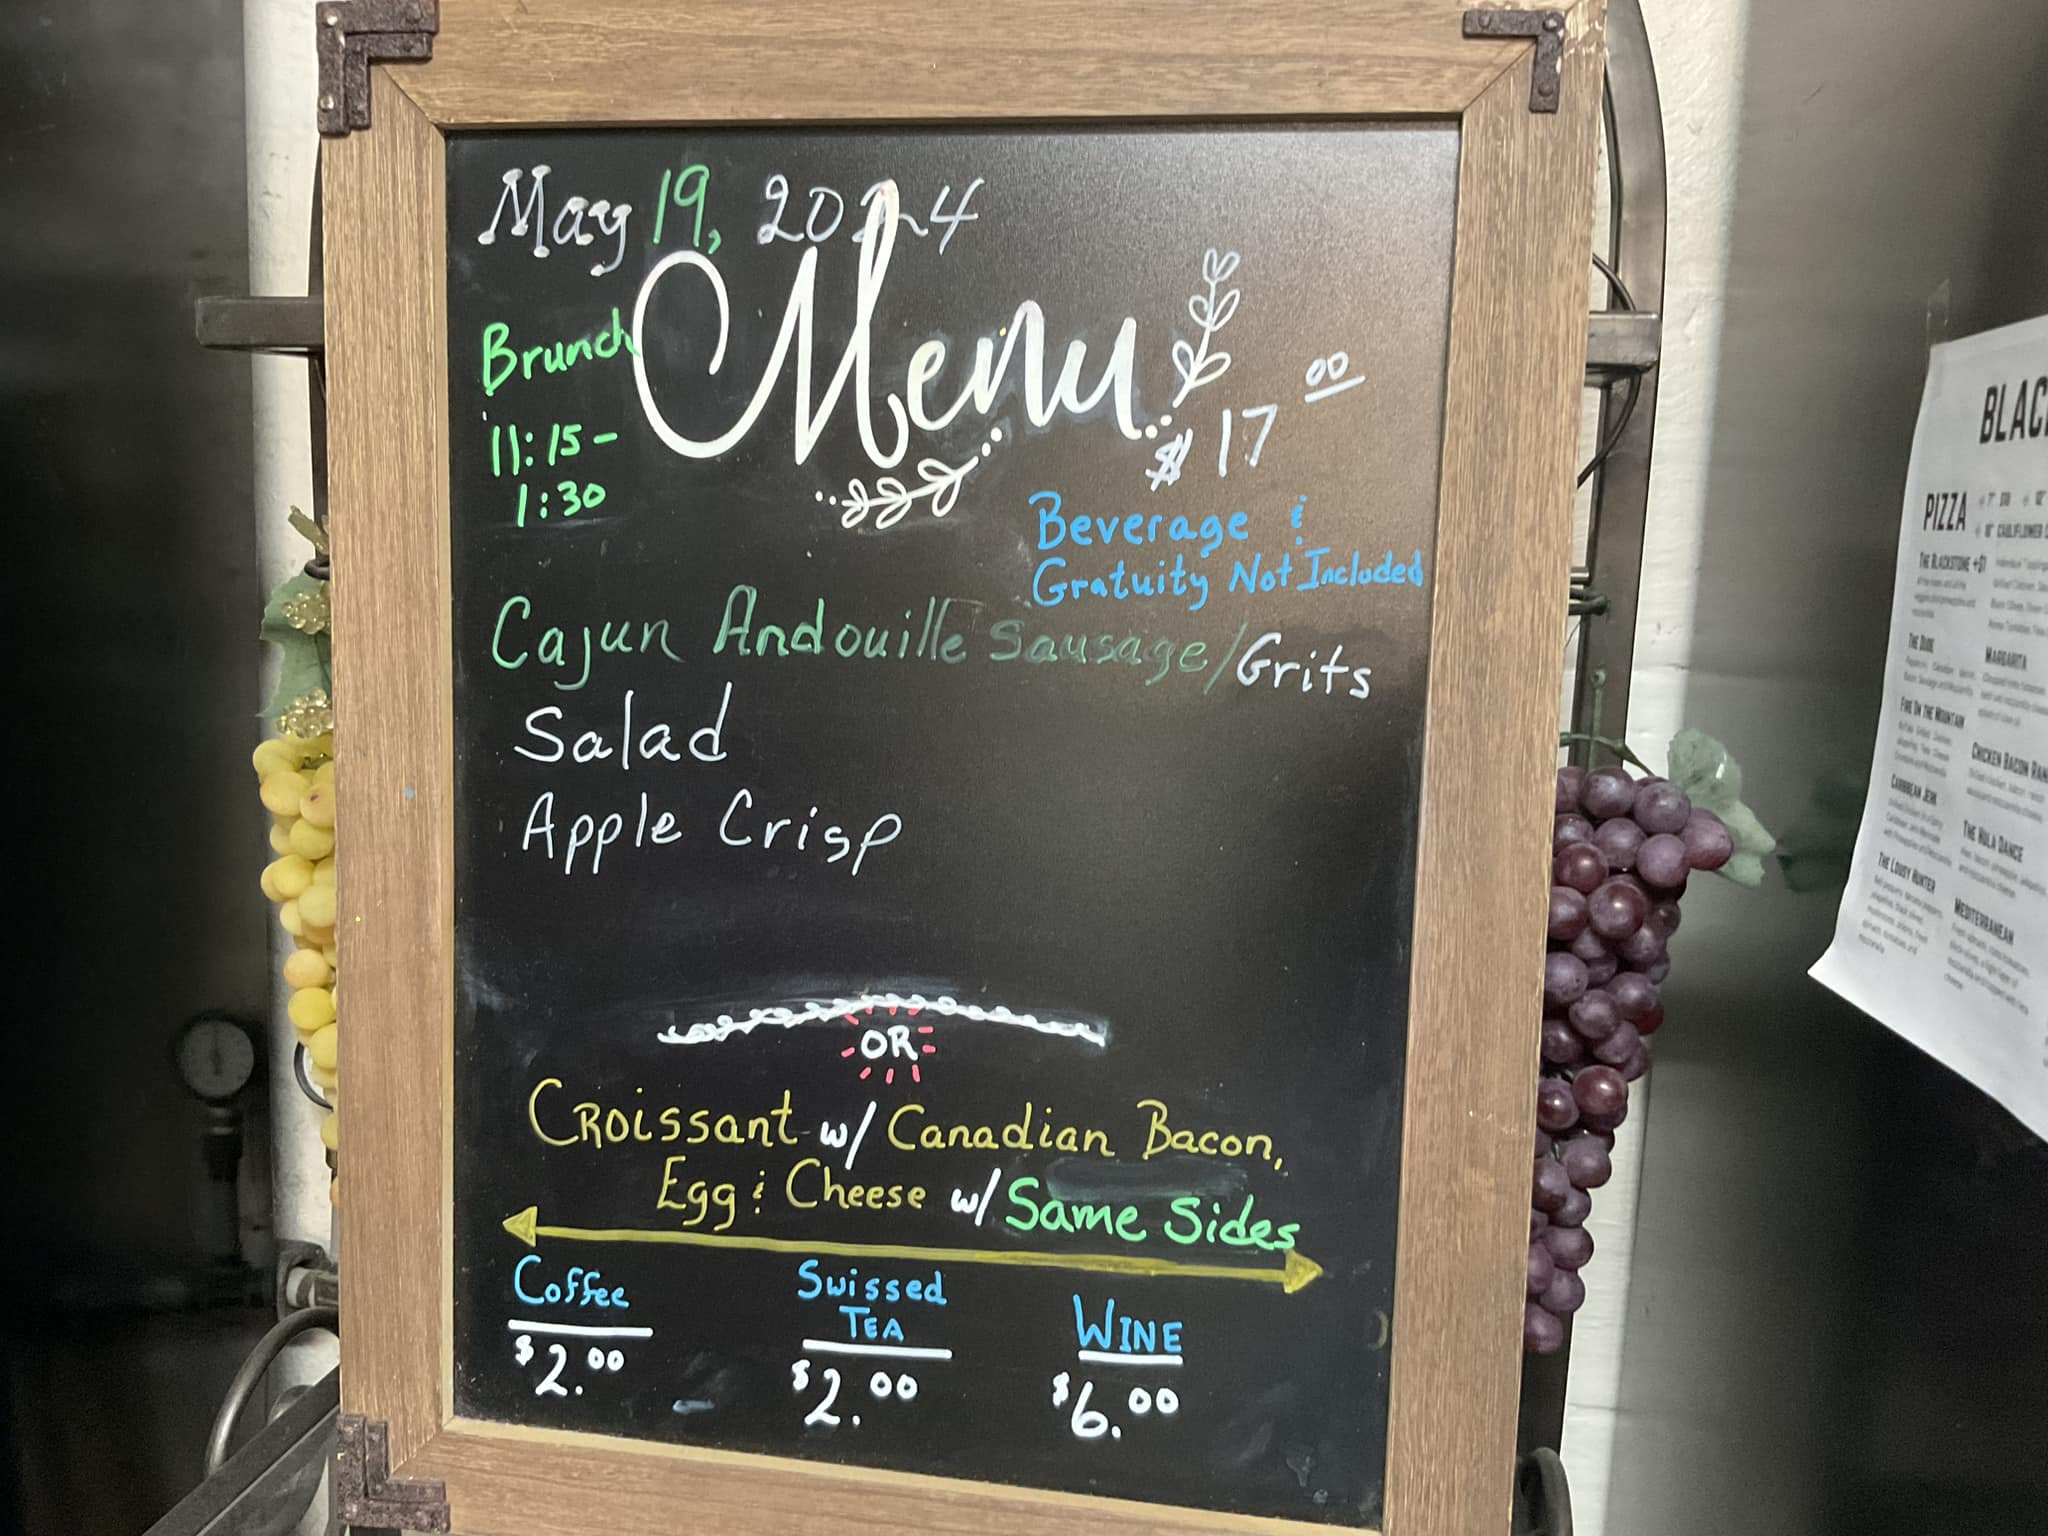 May 19, 2024
Menu
Brunch
11:15-
1:30
$17 00
Beverage &
Gratuity Not Included
Cajun Andouille Sausage/Grits
Salad
Apple Crisp
OR
Croissant w/ Canadian Bacon,
Egg & Cheese w/ Same Sides
Coffee
$2.00
Swissed
TEA
$2.00
WINE
$6.00
PIZZA
THE BLACKSTONE +$1
THE DUDE
MARGARITA
FIRE ON THE MOUNTAIN
CHICKEN BACON
CARIBBEAN JERK
THE HULA DANCE
THE LOUSY HUNTER
MEDITERRANEAN